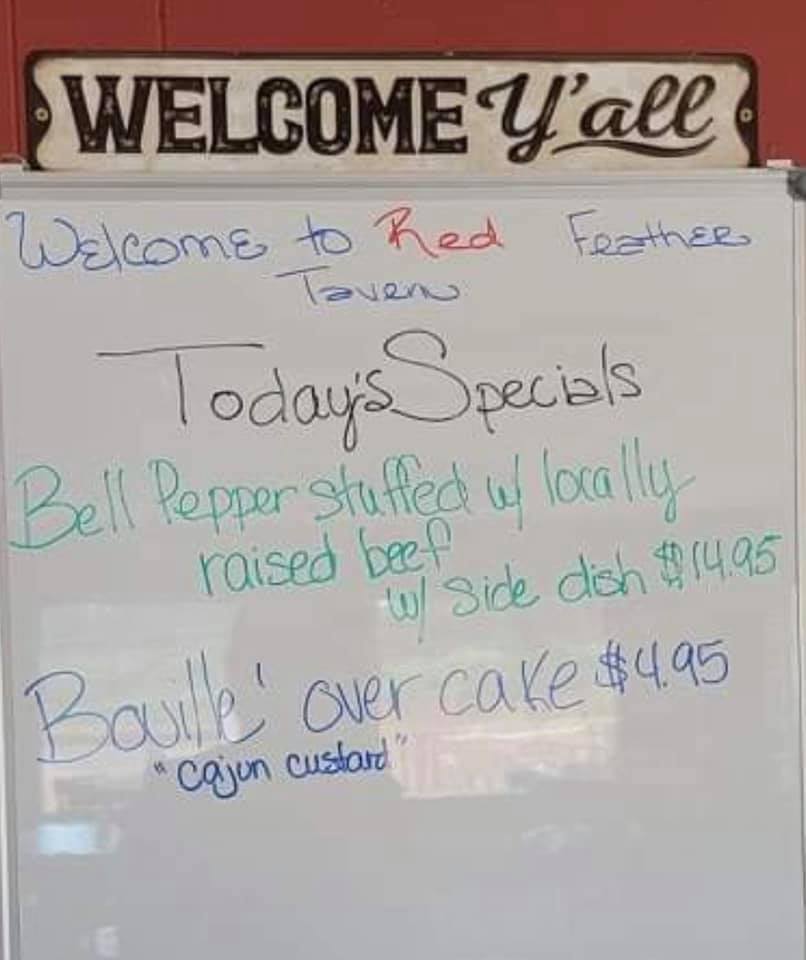 WELCOME Y'all
Welcome to Red Feather
Tavern
Today's Specials
Bell Pepper stuffed w/ locally
raised beef
w/ side dish $14.95
Bouille' over cake $4.95
"cajun custard"